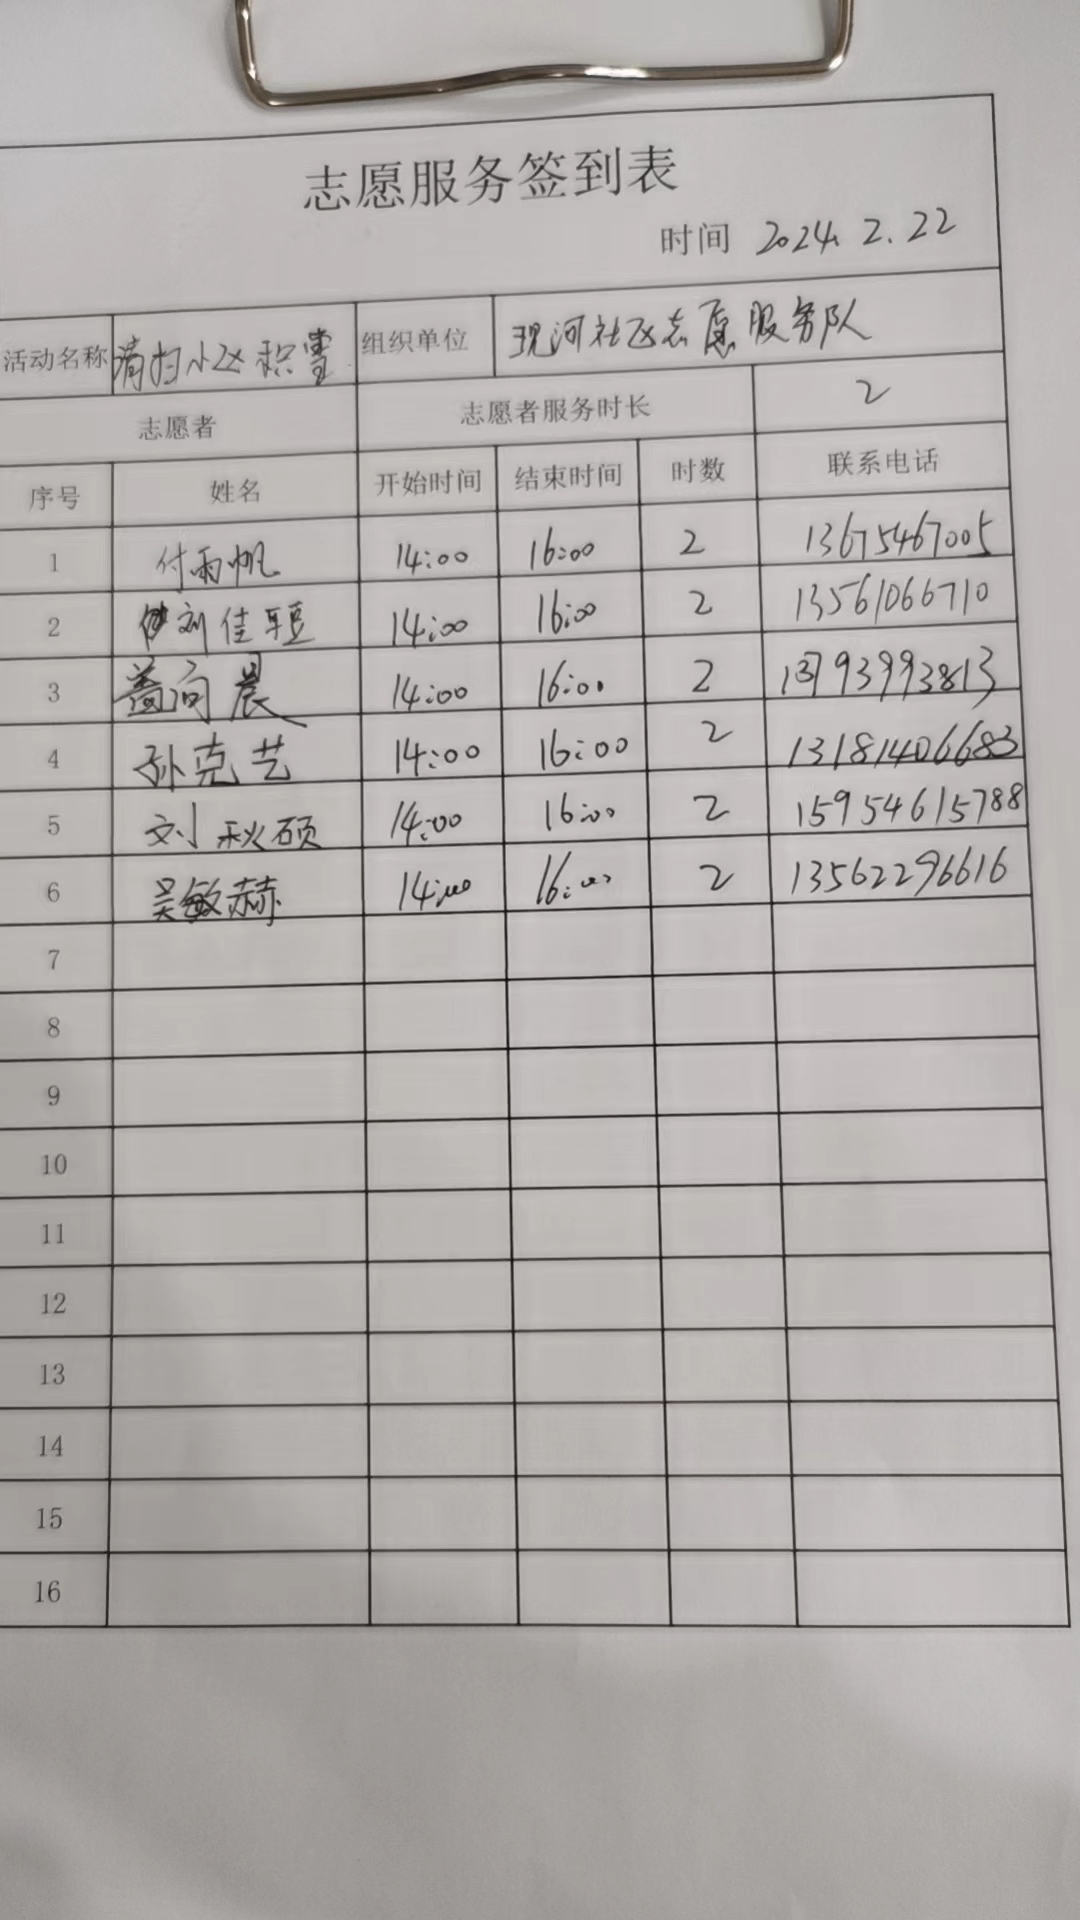 志愿服务签到表
时间 2024.2.22
活动名称 清扫小区积雪 组织单位 现河社区志愿服务队
志愿者 志愿者服务时长 2
序号 姓名 开始时间 结束时间 时数 联系电话
1 付雨帆 14:00 16:00 2 13675467005
2 刘佳 14:00 16:00 2 13561066710
3 盖向晨 14:00 16:00 2
4 孙克艺 14:00 16:00 2 13181406683
5 刘秋硕 14:00 16:00 2 15954615788
6 吴敏赫 14:00 16:00 2 13562296616
7
8
9
10
11
12
13
14
15
16